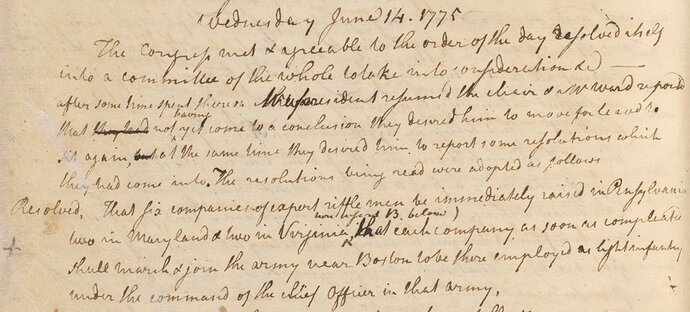 Wednesday June 14. 1775
The Congress met & agreeable to the order of the day resolved itself
into a committee of the whole to take into consideration &c —
after some time spent thereon the president resumed the chair & Mr Ward reported
that they had not yet come to a conclusion they desired him to move for leave to
having
sit again, but at the same time they desired him to report some resolutions which
they had come into. The resolutions being read were adopted as follows
Resolved, That six companies of expert riffle men be immediately raised in Pensylvania
two in Maryland & two in Virginia, that each company as soon as compleated
B. below)
shall march & join the army near Boston to be there employed as light infantry
under the command of the chief Officer in that army.